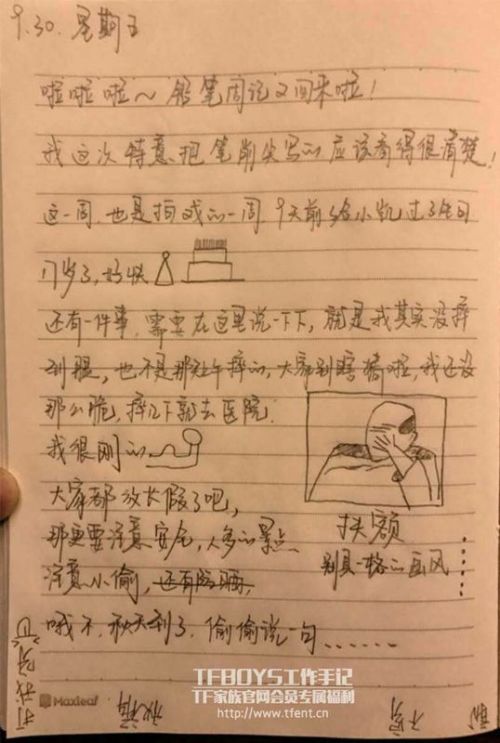 9.30. 星期五
啦啦啦～铅笔周记又回来啦！
我这次特意把笔削尖写的应该看得很清楚！
这一周,也是拍戏的一周 9天前给小凯过了生日
17岁了,好快
还有一件事,需要在这里说一下下,就是我其实没摔
到腿,也不是那天上午摔的,大家别瞎猜啦,我还没
那么脆,摔几下就去医院.
我很刚的
大家都放长假了吧,
那更要注意安全,人多的景点
注意小偷,还有防晒,
哦不 秋天到了.偷偷说一句......
扶额
别具一格的画风
......
打我呀
Maxleaf
TFBOYS工作手记
TF家族官网会员专属福利
http://www.tfent.cn